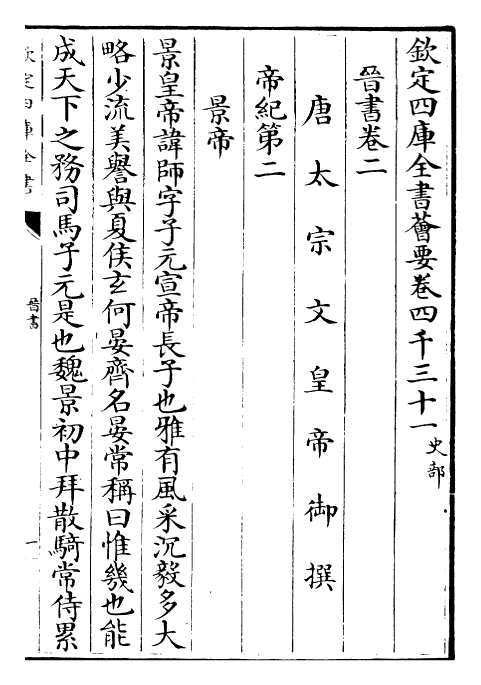 欽定四庫全書薈要卷四千三十一史部
晉書卷二
唐太宗文皇帝御撰
帝紀第二
景帝
景皇帝諱師字子元宣帝長子也雅有風采沉毅多大
略少流美譽與夏侯玄何晏齊名晏常稱曰惟幾也能
成天下之務司馬子元是也魏景初中拜散騎常侍累
欽定四庫全書
晉書
一